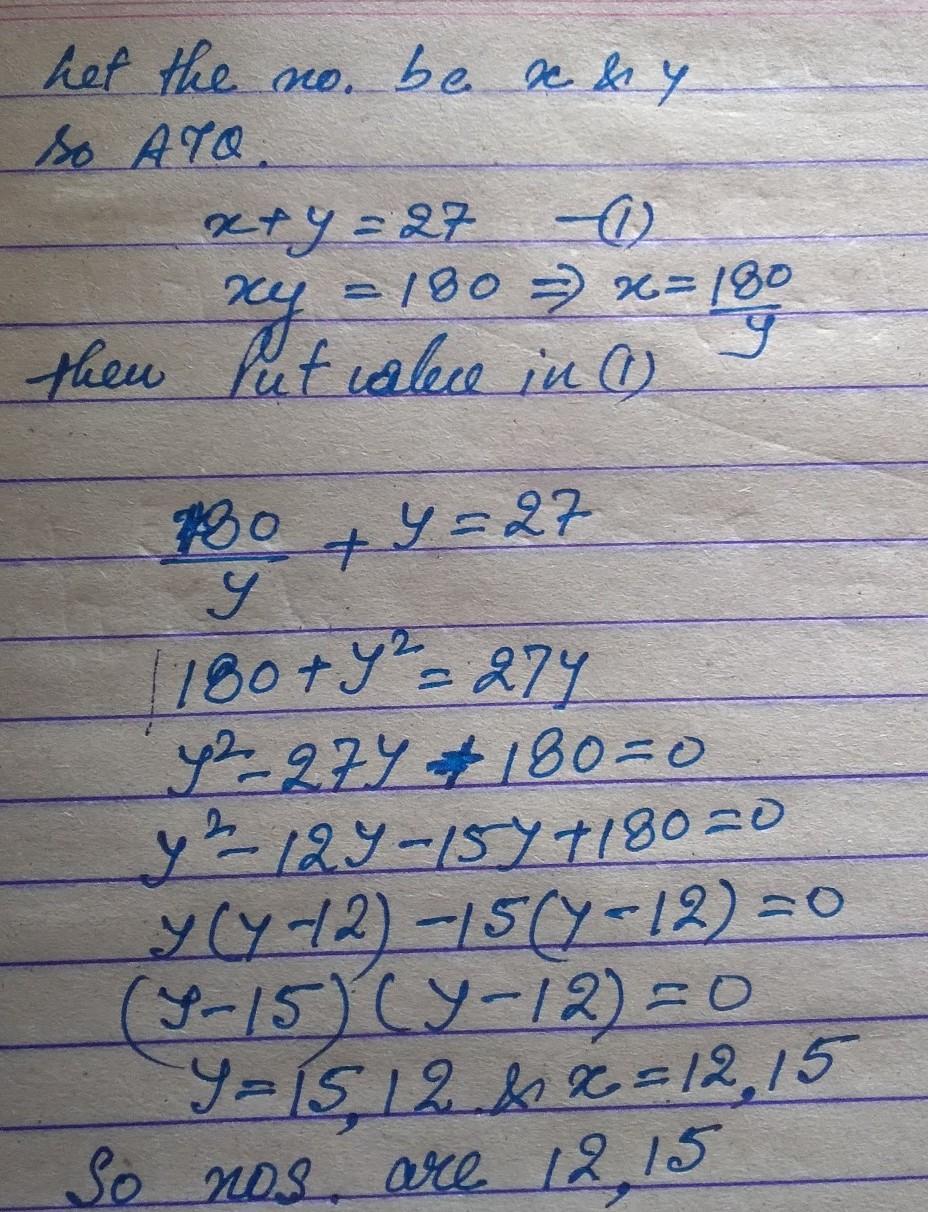 Let the no. be x & y
So ATQ.
x+y=27 —(1)
xy = 180 ⇒ x = 180/y
then Put value in (1)
180/y + y = 27
180 + y² = 27y
y² - 27y + 180 = 0
y² - 12y - 15y + 180 = 0
y(y-12) - 15(y-12) = 0
(y-15) (y-12) = 0
y = 15, 12 & x = 12, 15
So nos. are 12, 15